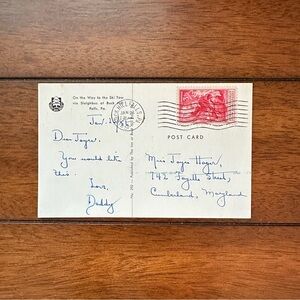 On the Way to the Ski Tow
via Sleighbus at Buck Hill
Falls, Pa.
Dear Joyce,
You would like
this.
Love,
Daddy
POST CARD
Miss Joyce Hager,
742 Fayette Street,
Cumberland, Maryland